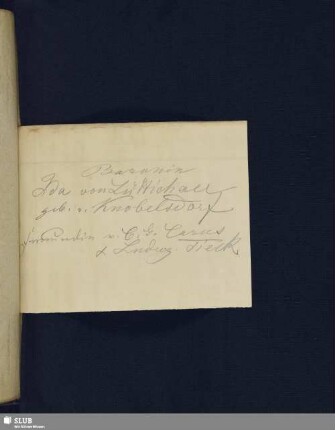 Baronin
Ida von Lüttichau
geb. v. Knobelsdorf
Freundin v. C. G. Carus
& Ludwg. Tieck
SLUB
Wir führen Wissen.